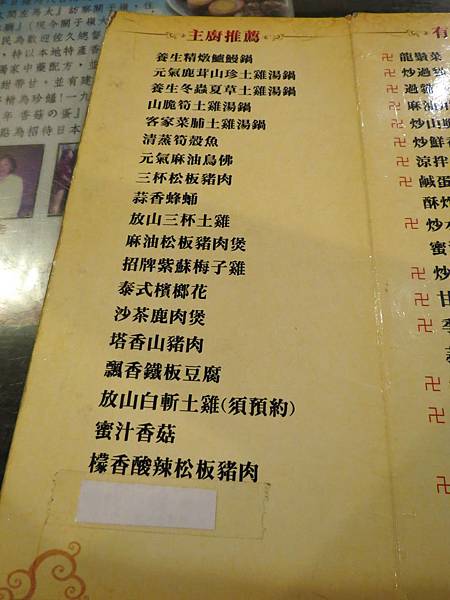 主廚推薦
養生精燉鱸鰻鍋
元氣鹿茸山珍土雞湯鍋
養生冬蟲夏草土雞湯鍋
山脆筍土雞湯鍋
客家菜脯土雞湯鍋
清蒸筍殼魚
元氣麻油烏佛
三杯松板豬肉
蒜香蜂蛹
放山三杯土雞
麻油松板豬肉煲
招牌紫蘇梅子雞
泰式檳榔花
沙茶鹿肉煲
塔香山豬肉
飄香鐵板豆腐
放山白斬土雞(須預約)
蜜汁香菇
檬香酸辣松板豬肉
有
龍鬚菜
卍 炒過
卍 過
卍 麻油
卍 炒山
卍 炒鮮
卍 涼拌
卍 鹹蛋
酥炸
卍 炒
蜜
卍 炒
卍 甘
卍
卍
卍
卍